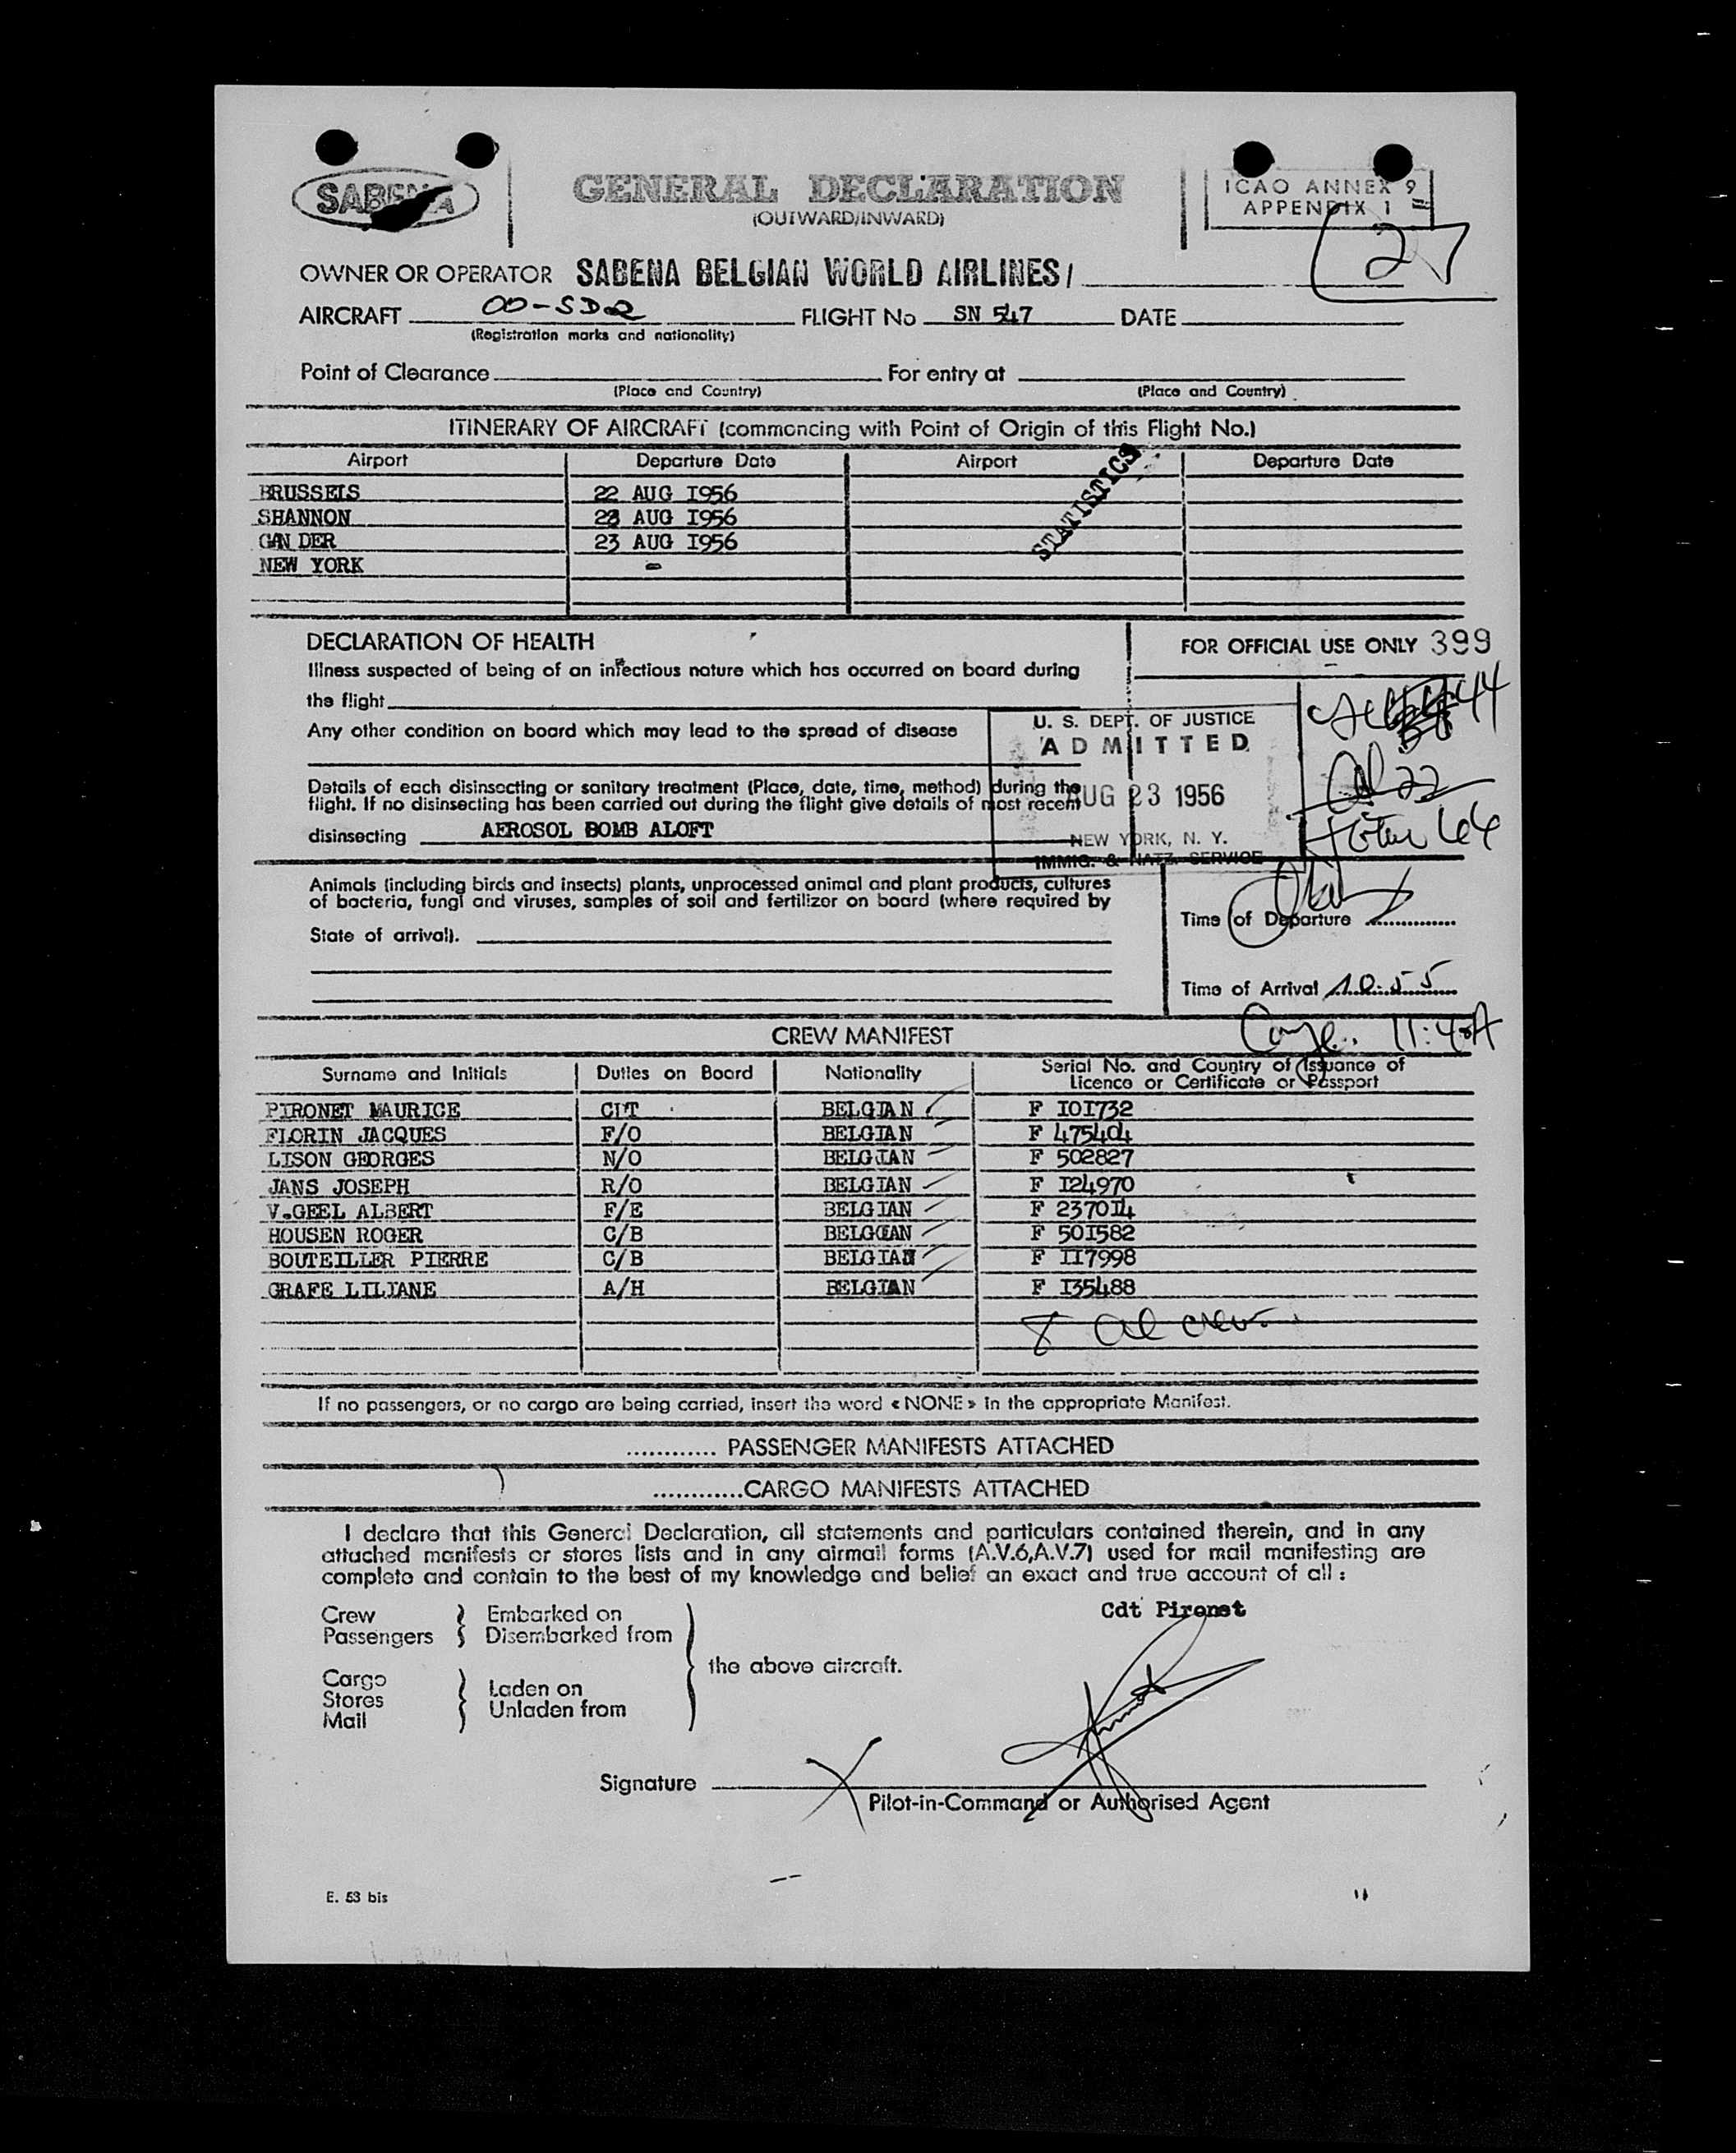 SABENA
GENERAL DECLARATION
(OUTWARD/INWARD)
ICAO ANNEX 9
APPENDIX 1
27
OWNER OR OPERATOR SABENA BELGIAN WORLD AIRLINES/
AIRCRAFT OO-SDQ FLIGHT No SN 547 DATE
(Registration marks and nationality)
Point of Clearance For entry at
(Place and Country) (Place and Country)
ITINERARY OF AIRCRAFT (commencing with Point of Origin of this Flight No.)
Airport Departure Date Airport Departure Date
BRUSSELS 22 AUG I956
SHANNON 23 AUG I956
GANDER 23 AUG I956
NEW YORK -
STATISTICS
DECLARATION OF HEALTH
FOR OFFICIAL USE ONLY 399
Illness suspected of being of an infectious nature which has occurred on board during
the flight
Any other condition on board which may lead to the spread of disease
U. S. DEPT. OF JUSTICE
ADMITTED
AUG 23 1956
NEW YORK, N. Y.
IMMIG. & NATZ. SERVICE
44
22
66
Details of each disinsecting or sanitary treatment (Place, date, time, method) during the
flight. If no disinsecting has been carried out during the flight give details of most recent
disinsecting AEROSOL BOMB ALOFT
Animals (including birds and insects) plants, unprocessed animal and plant products, cultures
of bacteria, fungi and viruses, samples of soil and fertilizer on board (where required by
State of arrival).
Time of Departure
Time of Arrival 10.55
CREW MANIFEST
11:40A
Surname and Initials Duties on Board Nationality Serial No. and Country of Issuance of
Licence or Certificate or Passport
PIRONET MAURICE CDT BELGIAN F IOI732
FLORIN JACQUES F/O BELGIAN F 475404
LISON GEORGES N/O BELGIAN F 502827
JANS JOSEPH R/O BELGIAN F I24970
V.GEEL ALBERT F/E BELGIAN F 2370I4
HOUSEN ROGER C/B BELGIAN F 50I582
BOUTEILLER PIERRE C/B BELGIAN F II7998
GRAFE LILIANE A/H BELGIAN F I35488
8 crew
If no passengers, or no cargo are being carried, insert the word « NONE » in the appropriate Manifest.
............ PASSENGER MANIFESTS ATTACHED
............CARGO MANIFESTS ATTACHED
I declare that this General Declaration, all statements and particulars contained therein, and in any
attached manifests or stores lists and in any airmail forms (A.V.6,A.V.7) used for mail manifesting are
complete and contain to the best of my knowledge and belief an exact and true account of all :
Cdt Pironet
Crew
Passengers
Embarked on
Disembarked from
the above aircraft.
Cargo
Stores
Mail
Laden on
Unladen from
Signature
Pilot-in-Command or Authorised Agent
E. 53 bis